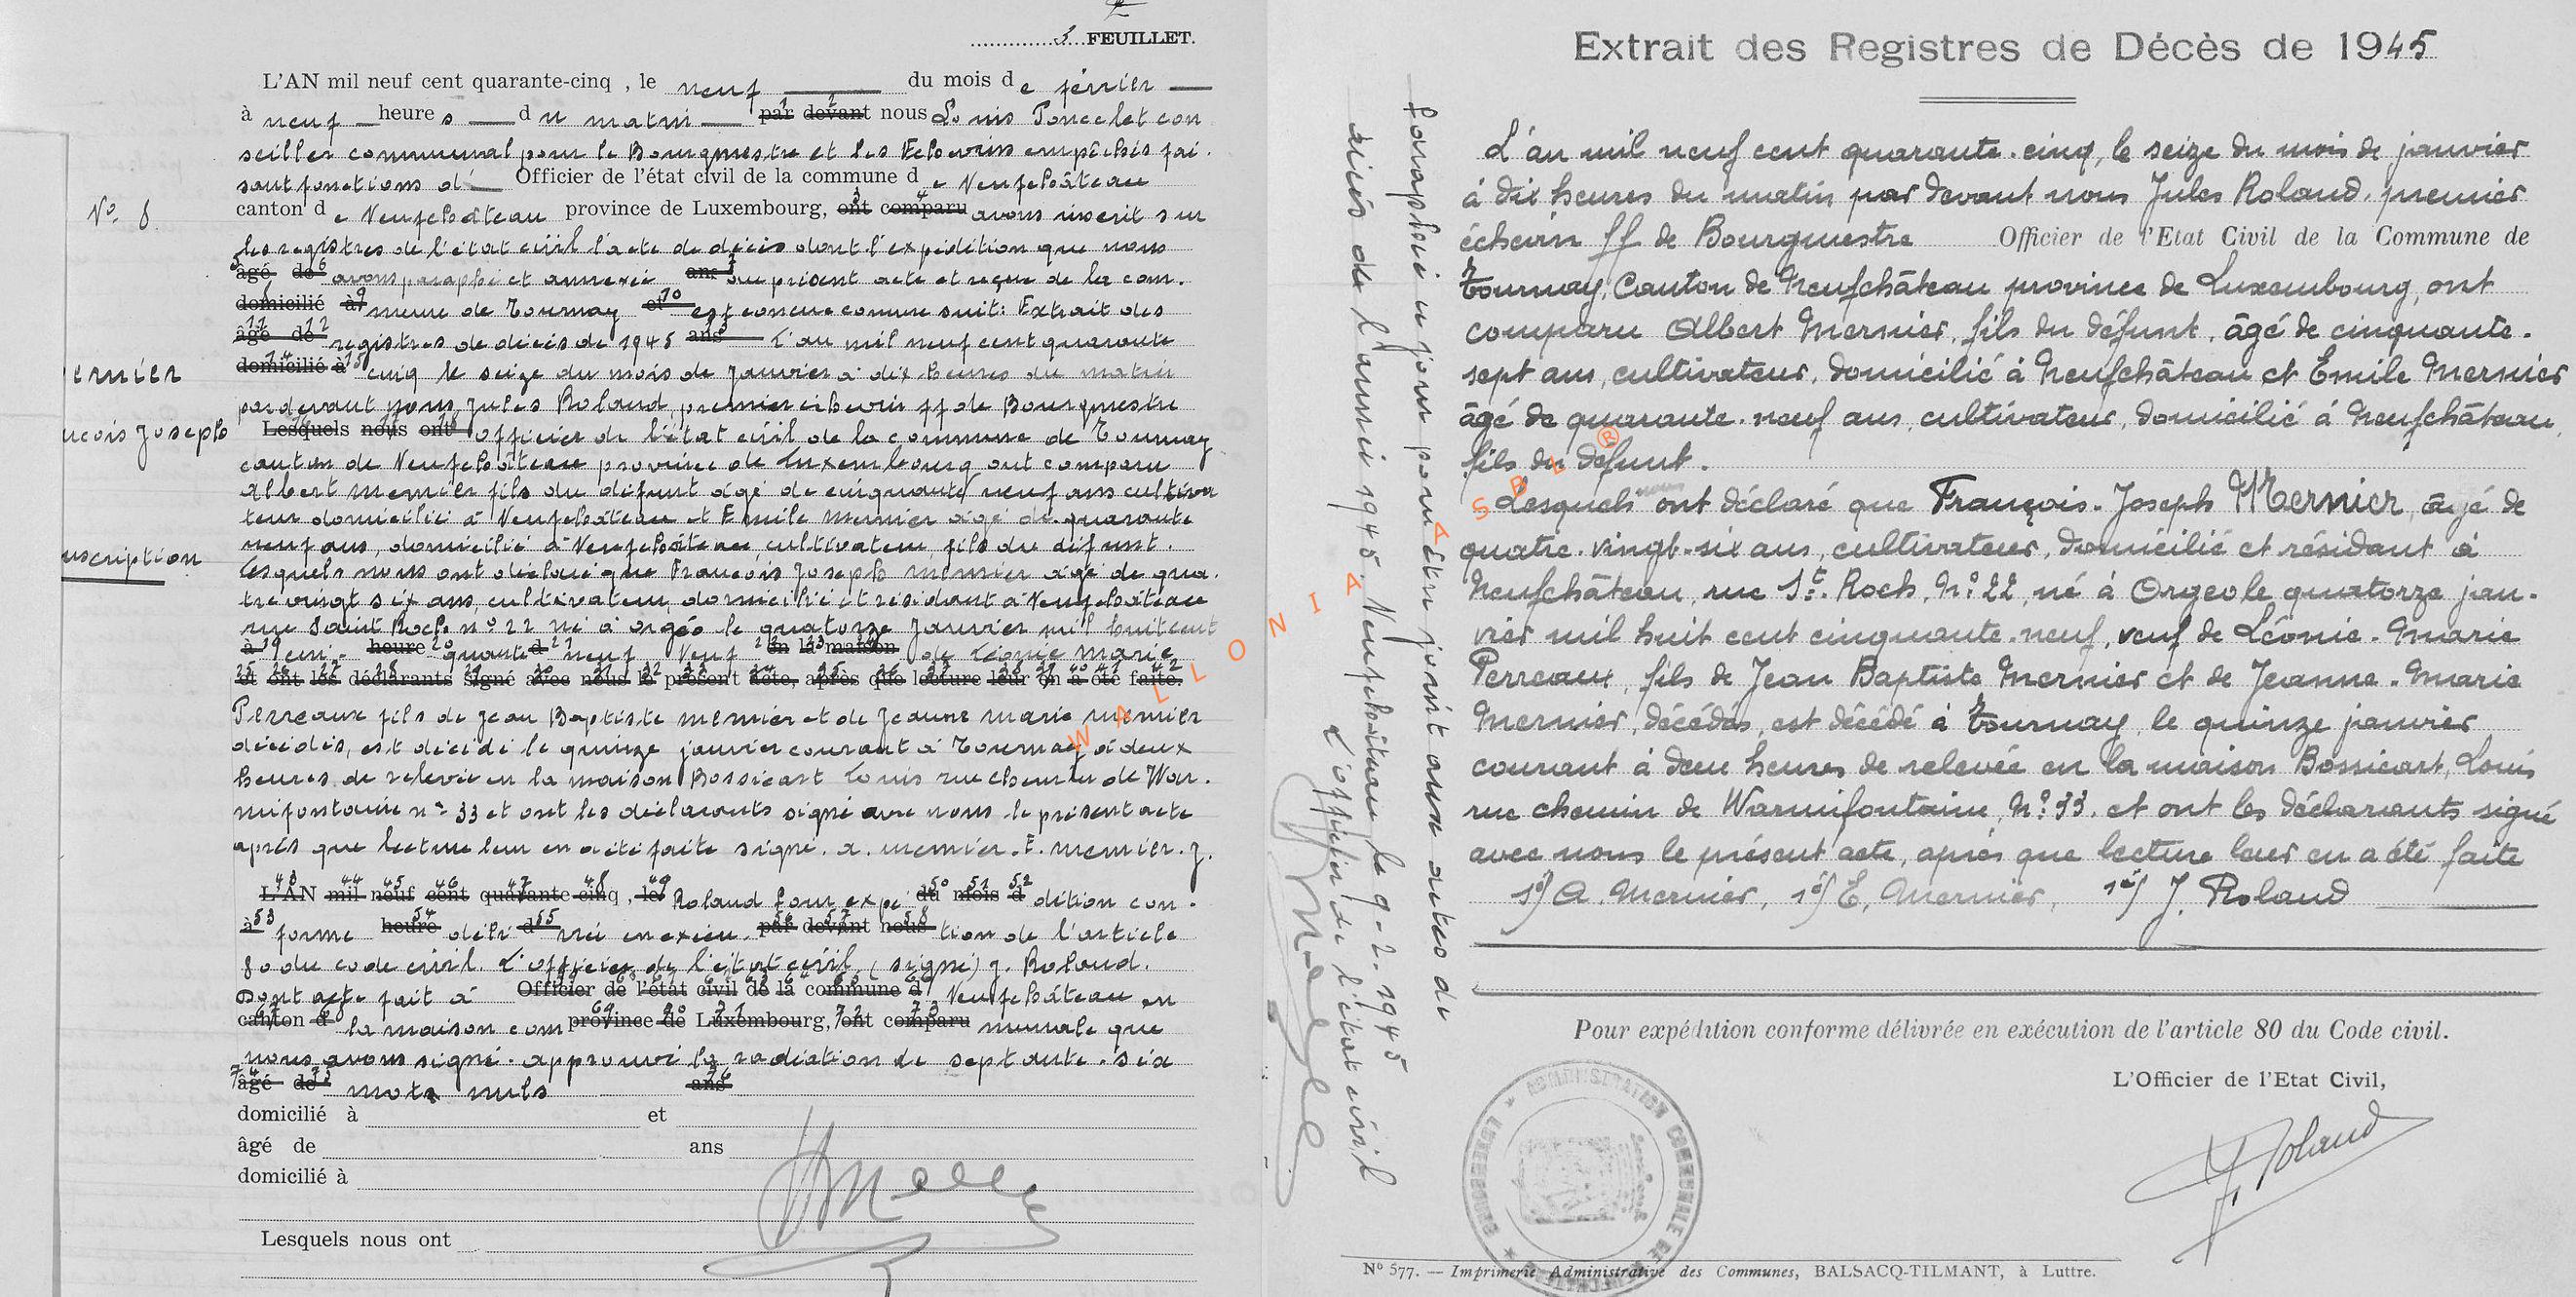 5 FEUILLET.
L'AN mil neuf cent quarante-cinq , le neuf du mois de février
à neuf heures du matin par devant nous Louis Poncelet con
seiller communal pour le Bourgmestre et les Echevins empêchés fai.
sant fonctions d' Officier de l'état civil de la commune de Neufchâteau
canton de Neufchâteau province de Luxembourg, ont comparu avons inscrit sur
les registres de l'état civil l'acte de décès dont l'expédition que nous
âgé de avons paraphé et annexée ans au présent acte et reçue de la com.
domicilié à mune de Tournay et est conçue comme suit: Extrait des
âgé de registres de décès de 1945 ans L'an mil neuf cent quarante
domicilié à cinq le seize du mois de Janvier à dix heures du matin
par devant nous, Jules Roland, premier échevin ff de Bourgmestre
Lesquels nous ont officier de l'état civil de la commune de Tournay
canton de Neufchâteau province de Luxembourg ont comparu
Albert Mernier fils du défunt âgé de cinquante neuf ans cultiva
teur domicilié à Neufchâteau et Emile Mernier âgé de quarante
neuf ans, domicilié à Neufchâteau cultivateur, fils du défunt.
Lesquels nous ont déclaré que François Joseph Mernier âgé de qua.
tre vingt six ans, cultivateur, domicilié et résidant à Neufchâteau
rue Saint Roch n° 22 né à Orgéo le quatorze Janvier mil huit cent
à cin. heure quante d neuf Veuf en la maison de Léonie Marie
et ont les déclarants signé avec nous le présent acte, après que lecture leur en a été faite.
Perreaux fils de Jean Baptiste Mernier et de Jeanne Marie Mernier
décédés, est décédé le quinze janvier courant à Tournay à deux
heures de relevée en la maison Bossicart Louis rue chemin de War.
mifontaine n° 33 et ont les déclarants signé avec nous le présent acte
après que lecture leur en a été faite signé. A. Mernier. E. Mernier. J.
L'AN mil neuf cent quarante-cinq , le Roland Pour expé du mois d dition con.
à forme heure déli d vrée en exécu. par devant nous tion de l'article
80 du code civil. L'officier de l'état civil, (signé) J. Roland.
Dont acte fait à Officier de l'état civil de la commune d Neufchâteau en
canton d la maison com province de Luxembourg, ont comparu munale que
nous avons signé. approuvé la radiation de septante-six
âgé de mots nuls ans
domicilié à et
âgé de ans
domicilié à
Lesquels nous ont
N° 8.
ernier
ncois Joseph
nscription
Paraphé ce jour pour être joint aux actes de
décès de l'année 1945. Neufchâteau le 9-2-1945
L'officier de l'état civil
Extrait des Registres de Décès de 1945
L'an mil neuf cent quarante-cinq, le seize du mois de janvier
à dix heures du matin par devant nous Jules Roland, premier
échevin ff de Bourgmestre Officier de l'Etat Civil de la Commune de
Tournay, Canton de Neufchâteau province de Luxembourg, ont
comparu Albert Mernier, fils du défunt, âgé de cinquante-
sept ans, cultivateur, domicilié à Neufchâteau et Emile Mernier
âgé de quarante-neuf ans, cultivateur, domicilié à Neufchâteau,
fils du défunt.
Lesquels nous ont déclaré que François-Joseph Mernier, âgé de
quatre-vingt-six ans, cultivateur, domicilié et résidant à
Neufchâteau, rue St. Roch, N° 22, né à Orgeo le quatorze jan-
vier mil huit cent cinquante-neuf, veuf de Léonie-Marie
Perreaux, fils de Jean Baptiste Mernier et de Jeanne-Marie
Mernier, décédés, est décédé à Tournay, le quinze janvier
courant à deux heures de relevée en la maison Bossicart, Louis
rue chemin de Warmifontaine, N° 33. et ont les déclarants signé
avec nous le présent acte, après que lecture leur en a été faite
sé/ A. Mernier, sé/ E. Mernier, sé/ J. Roland
Pour expédition conforme délivrée en exécution de l'article 80 du Code civil.
L'Officier de l'Etat Civil,
J. Roland
N° 577. — Imprimerie Administrative des Communes, BALSACQ-TILMANT, à Luttre.
WALLONIA ASBL ®